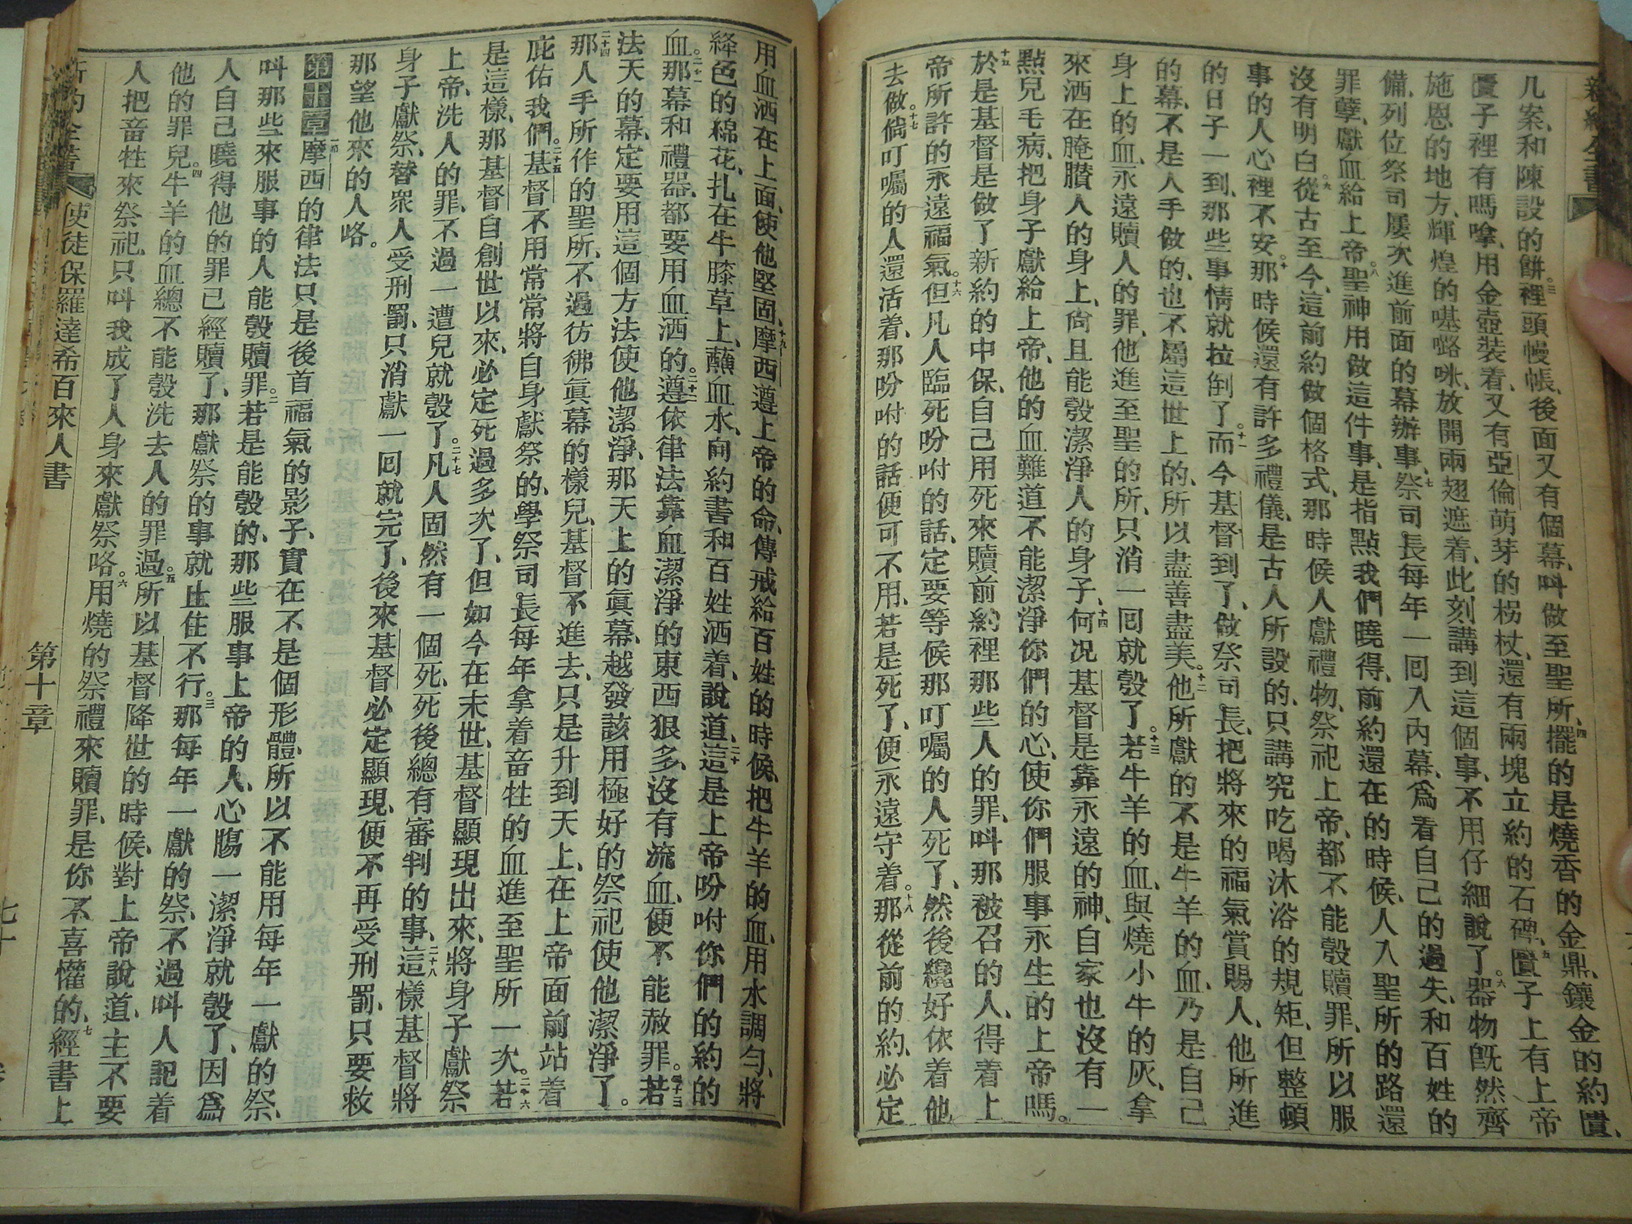 新約全書
几案、和陳設的餅。三裡頭幔帳、後面又有個幕、叫做至聖所、四擺的是燒香的金鼎、鑲金的約匱、
匱子裡有嗎嗱、用金壺裝着、又有亞倫萌芽的柺杖、還有兩塊立約的石碑、五匱子上有上帝
施恩的地方、輝煌的𠼻𠺝𠱸、放開兩翅遮着、此刻講到這個事、不用仔細說了。六器物既然齊
備、列位祭司屢次進前面的幕辦事、七祭司長每年一回入內幕、爲着自己的過失、和百姓的
罪孽、獻血給上帝。八聖神用做這件事、是指點我們曉得、前約還在的時候、人入聖所的路還
沒有明白。九從古至今、這前約做個格式、那時候人獻禮物、祭祀上帝、都不能彀贖罪、所以服
事的人心裡不安。十那時候還有許多禮儀、是古人所設的、只講究吃喝沐浴的規矩、但整頓
的日子一到、那些事情就拉倒了。十一而今基督到了、做祭司長、把將來的福氣賞賜人、他所進
的幕、不是人手做的、也不屬這世上的、所以盡善盡美。十二他所獻的不是牛羊的血、乃是自己
身上的血、永遠贖人的罪、他進至聖的所、只消一回就彀了。十三若牛羊的血、與燒小牛的灰、拿
來洒在腌臢人的身上、尙且能彀潔淨人的身子、十四何况基督是靠永遠的神、自家也沒有一
點兒毛病、把身子獻給上帝、他的血難道不能潔淨你們的心、使你們服事永生的上帝嗎。
十五於是基督是做了新約的中保、自己用死來贖前約裡那些人的罪、叫那被召的人、得着上
帝所許的永遠福氣。十六但凡人臨死吩咐的話、定要等候那叮囑的人死了、然後纔好依着他
去做。十七倘叮囑的人還活着、那吩咐的話便可不用、若是死了、便永遠守着。十八那從前的約、必定
用血洒在上面、使他堅固、十九摩西遵上帝的命、傳戒給百姓的時候、把牛羊的血、用水調勻、將
絳色的棉花、扎在牛膝草上、蘸血水、向約書和百姓洒着、說道、二十這是上帝吩咐你們的約的
血。二十一那幕和禮器、都要用血洒的、二十二遵依律法靠血潔淨的東西狠多、沒有流血、便不能赦罪。二十三若
法天的幕、定要用這個方法使他潔淨、那天上的眞幕、越發該用極好的祭祀使他潔淨了。
二十四那人手所作的聖所、不過彷彿眞幕的樣兒、基督不進去、只是升到天上、在上帝面前站着
庇佑我們。二十五基督不用常常將自身獻祭的、學祭司長每年拿着畜牲的血進至聖所一次。二十六若
是這樣、那基督自創世以來、必定死過多次了、但如今在末世、基督顯現出來、將身子獻祭
上帝、洗人的罪、不過一遭兒就彀了。二十七凡人固然有一個死、死後總有審判的事、二十八這樣基督將
身子獻祭、替衆人受刑罰、只消獻一回就完了、後來基督必定顯現、便不再受刑罰、只要救
那望他來的人咯。
第十章 一節摩西的律法只是後首福氣的影子、實在不是個形體、所以不能用每年一獻的祭、
叫那些來服事的人能彀贖罪。二若是能彀的、那些服事上帝的人、心腸一潔淨就彀了、因爲
人自己曉得他的罪已經贖了、那獻祭的事就止住不行。三那每年一獻的祭、不過叫人記着
他的罪兒。四牛羊的血總不能彀洗去人的罪過。五所以基督降世的時候、對上帝說道、主不要
人把畜牲來祭祀、只叫我成了人身來獻祭咯。六用燒的祭禮來贖罪、是你不喜懽的、七經書上
新約全書 使徒保羅達希百來人書 第十章 七十